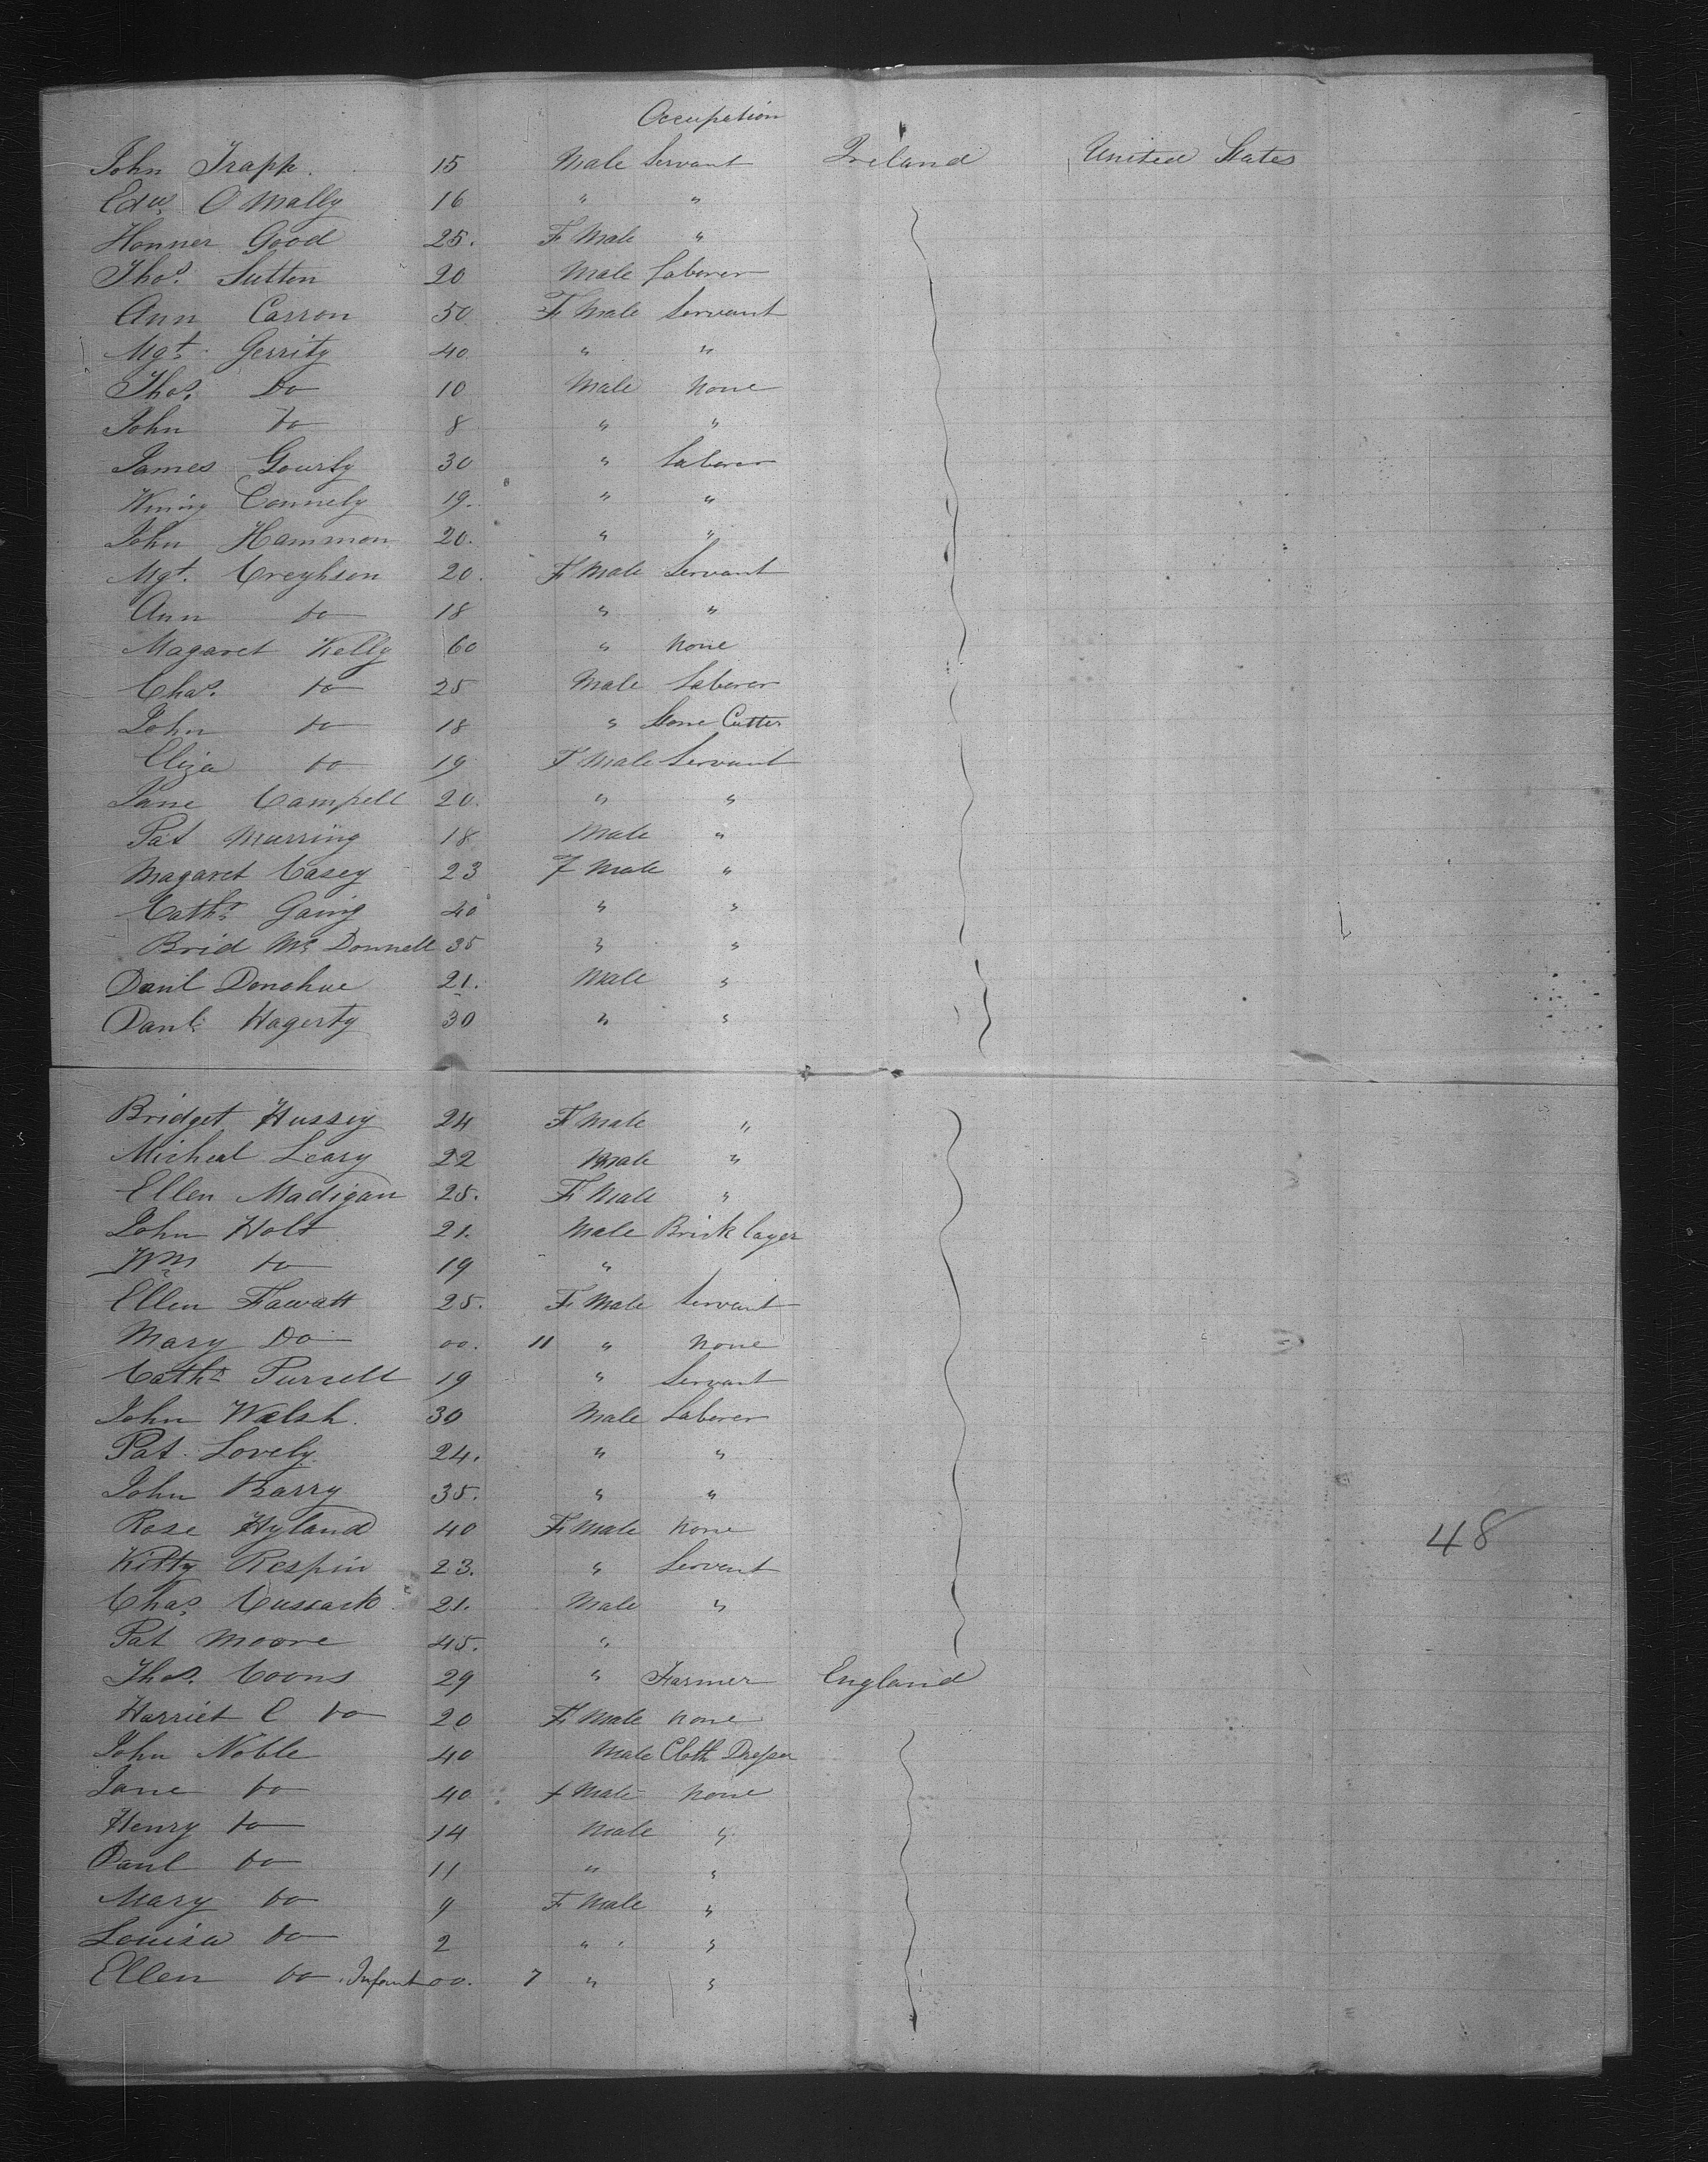 Occupation
John Trapp. 15 Male Servant Ireland United States
Edw. O Mally 16 " "
Honner Good 25. F Male "
Thos. Sutton 20 Male Laborer
Ann Carron 50 F Male Servant
Mgt. Gerrity 40 " "
Thos. Do 10 Male None
John do 8 " "
James Gourly 30 " Laborer
Winny Connely 19. " "
John Hammon 20. " "
Mgt. Creyhson 20. F Male Servant
Ann do 18 " "
Magaret Kelly 60 " None
Chas. do 25 Male Laborer
John do 18 " Stone Cutter
Eliza do 19 F Male Servant
Jane Campell 20. " "
Pat Murring 18 Male "
Magaret Casey 23 F Male "
Cath. Gaing 40 " "
Brid Mc Donnell 35 " "
Danl Donohue 21. Male "
Danl. Hagerty 30 " "
Bridget Hussey 24 F Male "
Micheal Leary 22 Male "
Ellen Madigan 25. F Male "
John Holt 21. Male Brick layer
Wm do 19 "
Ellen Fawatt 25. F Male Servant
Mary Do 00. 11 " None
Cath. Pursell 19 " Servant
John Walsh. 30 Male Laborer
Pat. Lovely. 24. " "
John Barry 35. " "
Rose Hyland 40 F Male None
48
Kitty Respin 23. " Servant
Chas. Cussack 21. Male "
Pat Moore 45. "
Thos. Coons 29 " Farmer England
Harriet C do 20 F Male None
John Noble 40 Male Cloth Dresser
Jane do 40 F Male None
Henry do 14 Male "
Paul do 11 " "
Mary do 9 F Male "
Louisa do 2 " "
Ellen do Infant 00. 7 " "